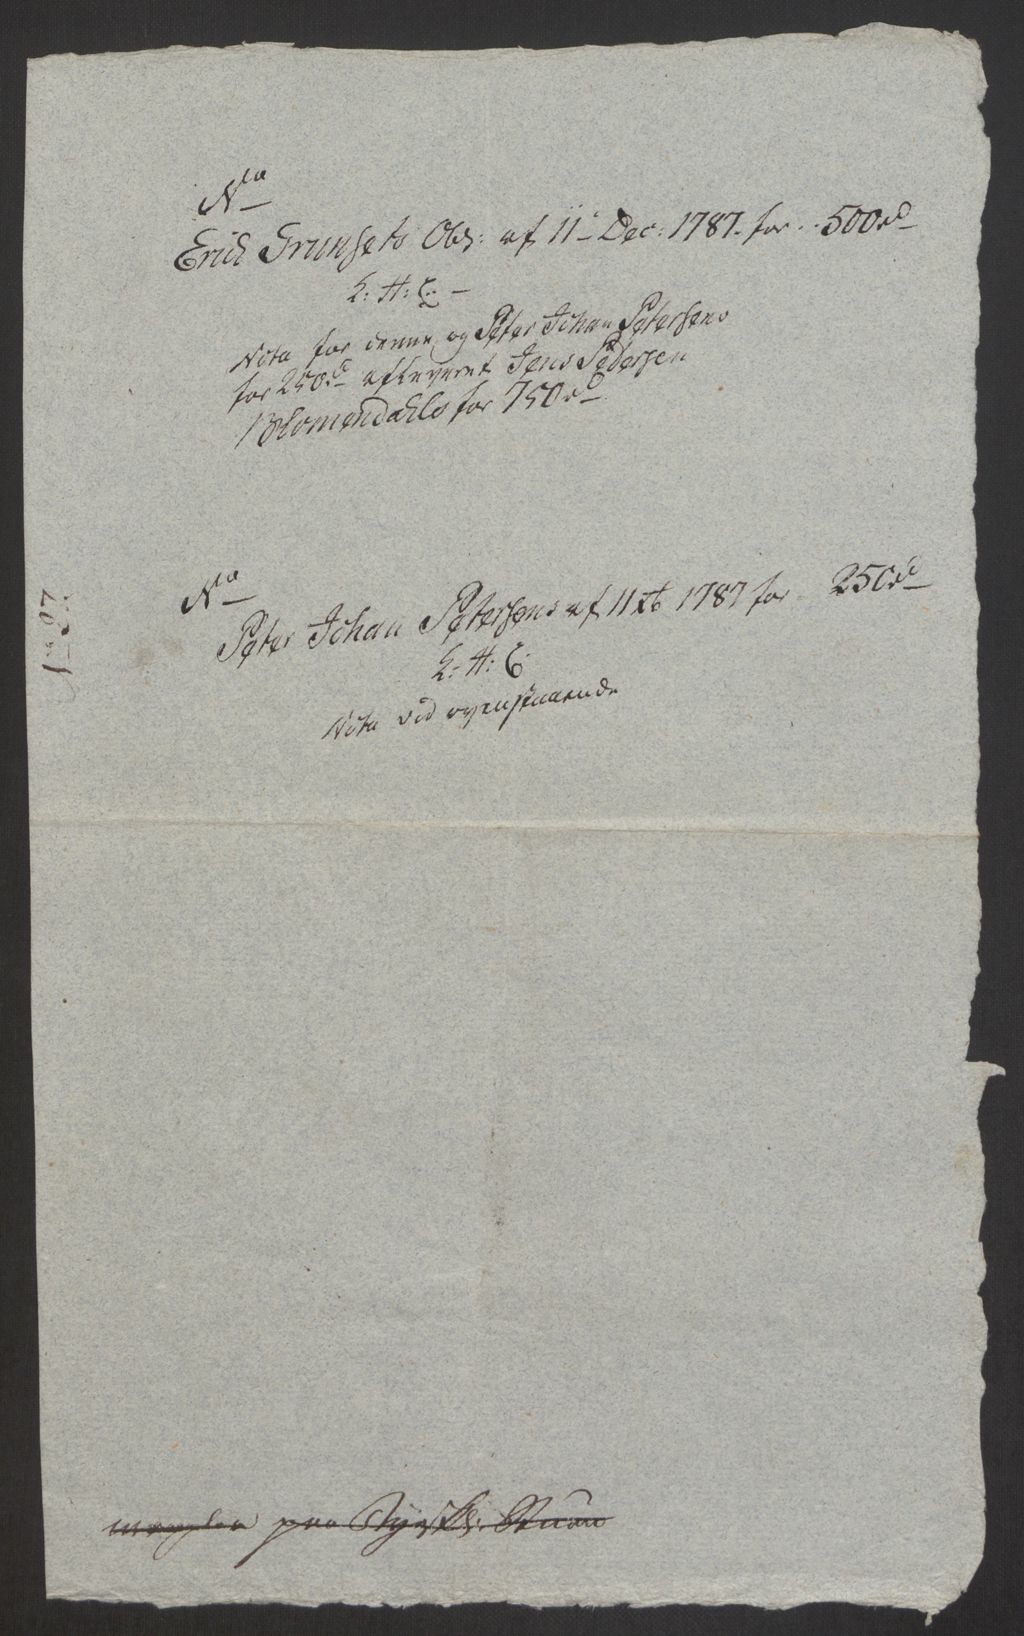 No
Erich Grunsets Obl: af 11te Dec: 1787. for 500rd
L: H: C.
Nota for denne og Peter Johan Petersens
for 250rd afleveret Jens Pedersen
Blomendahls for 750rd
No
Peter Johan Petersens af 11 Xb 1787 for 250rd
L: H: C
Nota vid ovenstaaende
mangler paa